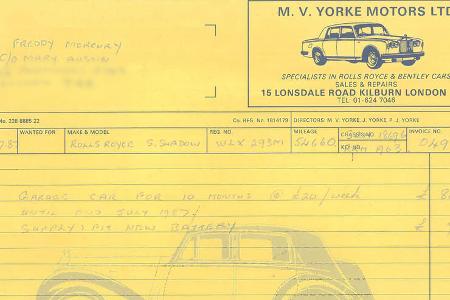 M. V. YORKE MOTORS LTD
SPECIALISTS IN ROLLS ROYCE & BENTLEY CARS
SALES & REPAIRS
15 LONSDALE ROAD KILBURN LONDON
TEL: 01-624 7046
FREDDY MERCURY
C/O MARY AUSTIN
No. 226 8885 22
Co. REG. No. 1614179 DIRECTORS: M. V. YORKE, J. YORKE P. J. YORKE
WANTED FOR MAKE & MODEL REG. NO. MILEAGE CHASSIS NO. INVOICE NO.
7.87 ROLLS ROYCE S. SHADOW WLX 293M 54660 049
KEY NO.
GARAGE CAR FOR 10 MONTHS @ £20/week £ 8
UNTIL END JULY 1987
SUPPLY & FIT NEW BATTERY £